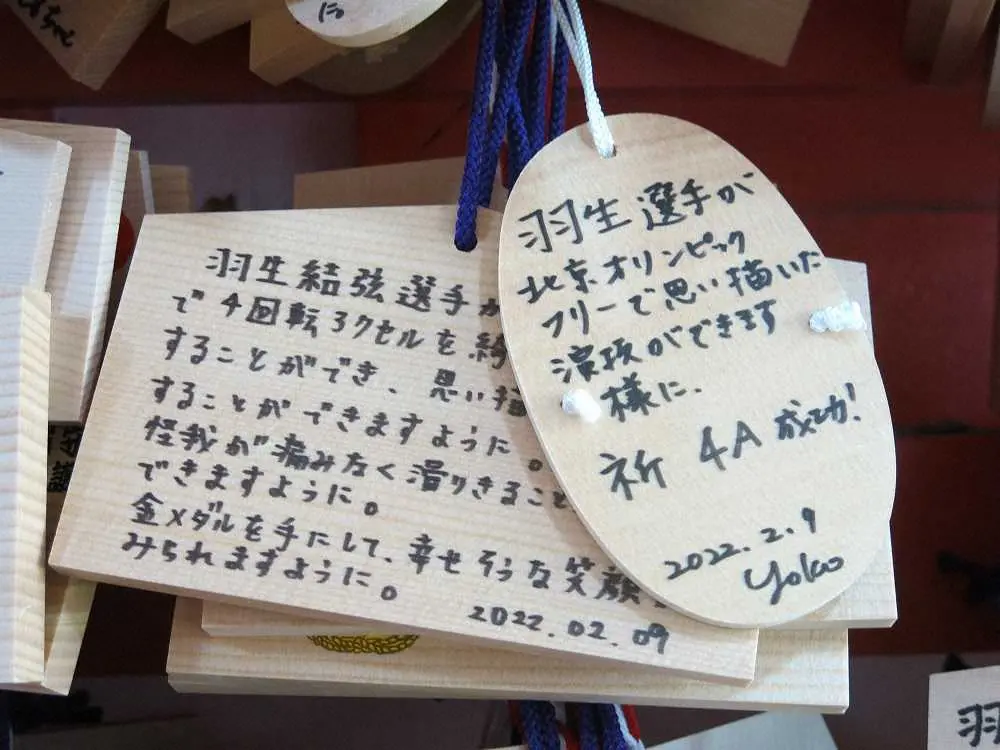 に
ちゃん
羽生結弦選手が
で4回転アクセルを綺
することができ、思い描
することができますように。
怪我が痛みなく滑りきること
できますように。
金メダルを手にして、幸せそうな笑顔
みられますように。
2022.02.09
羽生選手が
北京オリンピック
フリーで思い描いた
演技ができます
様に.
祈 4A 成功!
2022.2.9
yoko
羽